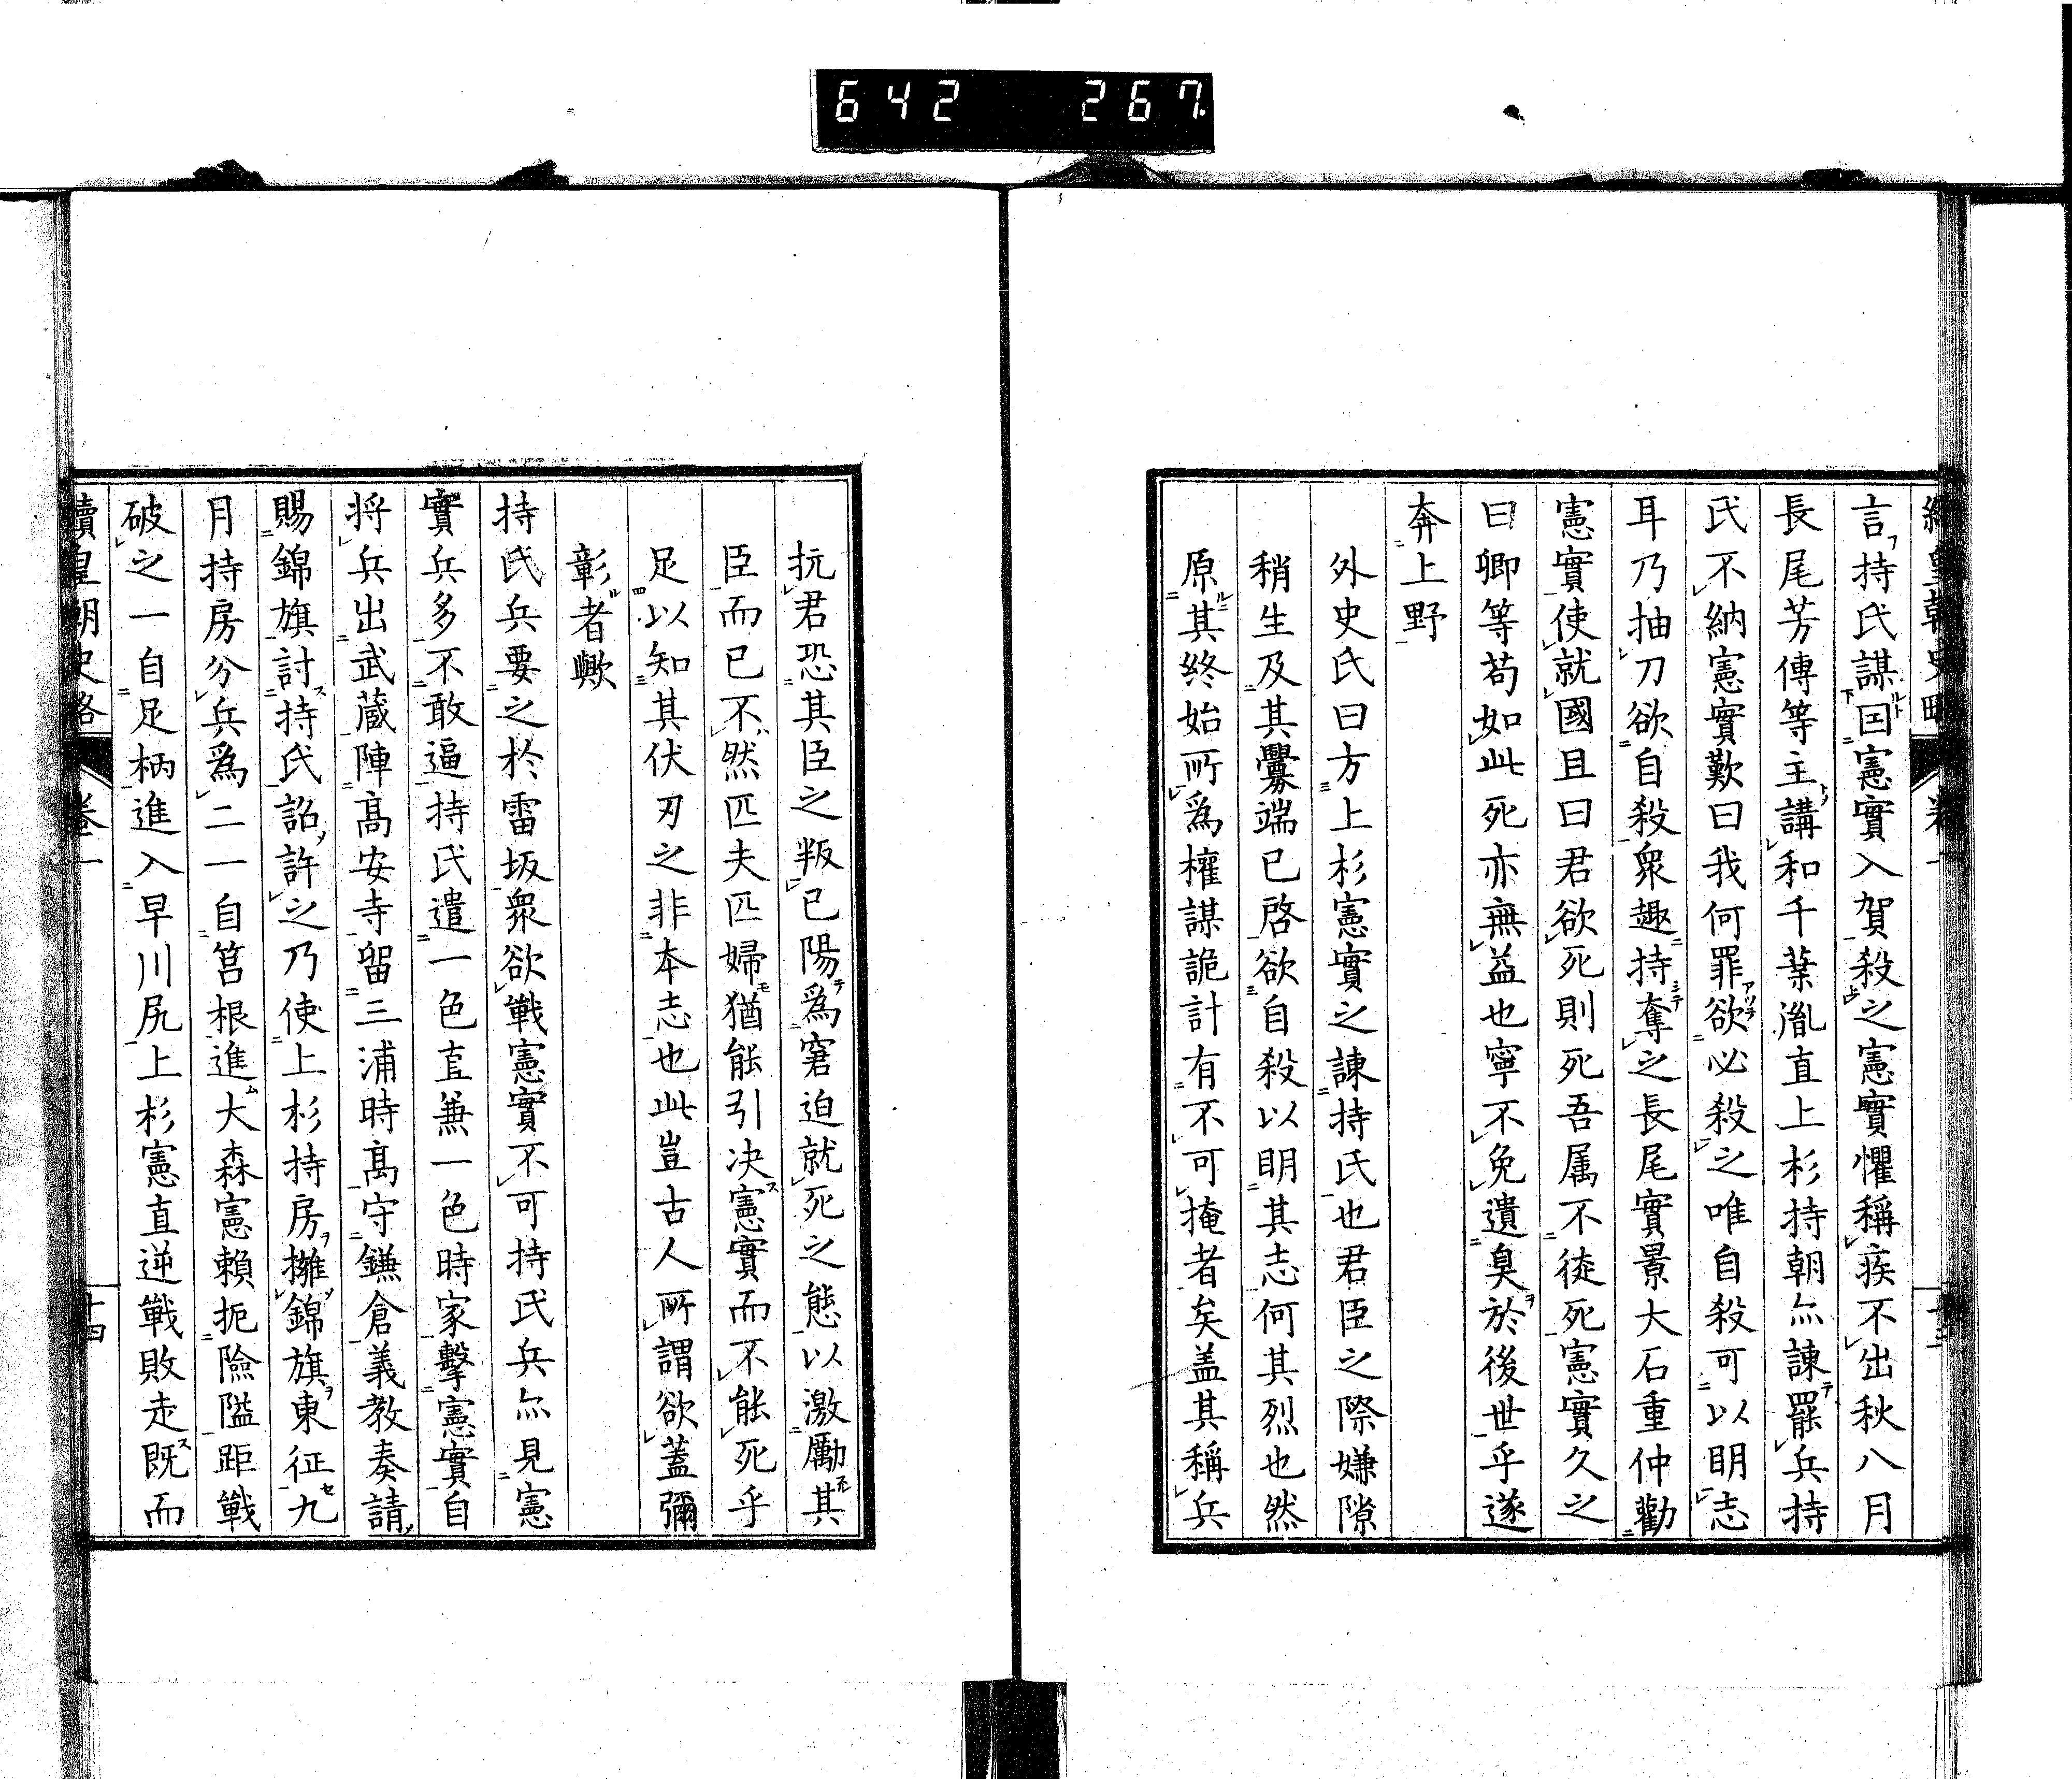 642 267.
續皇朝史略 卷一
言持氏謀因憲實入賀殺之憲實懼稱疾不出秋八月
長尾芳傳等主講和千葉胤直上杉持朝亦諫罷兵持
氏不納憲實歎曰我何罪欲必殺之唯自殺可以明志
耳乃抽刀欲自殺衆趣持奪之長尾實景大石重仲勸
憲實使就國且曰君欲死則死吾属不徒死憲實久之
曰卿等苟如此死亦無益也寧不免遺臭於後世乎遂
奔上野
外史氏曰方上杉憲實之諫持氏也君臣之際嫌隙
稍生及其釁端已啓欲自殺以明其志何其烈也然
原其終始所爲權謀詭計有不可掩者矣盖其稱兵
抗君恐其臣之叛已陽爲窘迫就死之態以激勵其
臣而已不然匹夫匹婦猶能引决憲實而不能死乎
足以知其伏刃之非本志也此豈古人所謂欲蓋彌
彰者歟
持氏兵要之於雷坂衆欲戰憲實不可持氏兵亦見憲
實兵多不敢逼持氏遣一色直兼一色時家擊憲實自
将兵出武蔵陣高安寺留三浦時高守鎌倉義教奏請
賜錦旗討持氏詔許之乃使上杉持房擁錦旗東征九
月持房分兵爲二一自筥根進大森憲頼扼險隘距戰
破之一自足柄進入早川尻上杉憲直逆戰敗走既而
續皇朝史略 卷一 十四